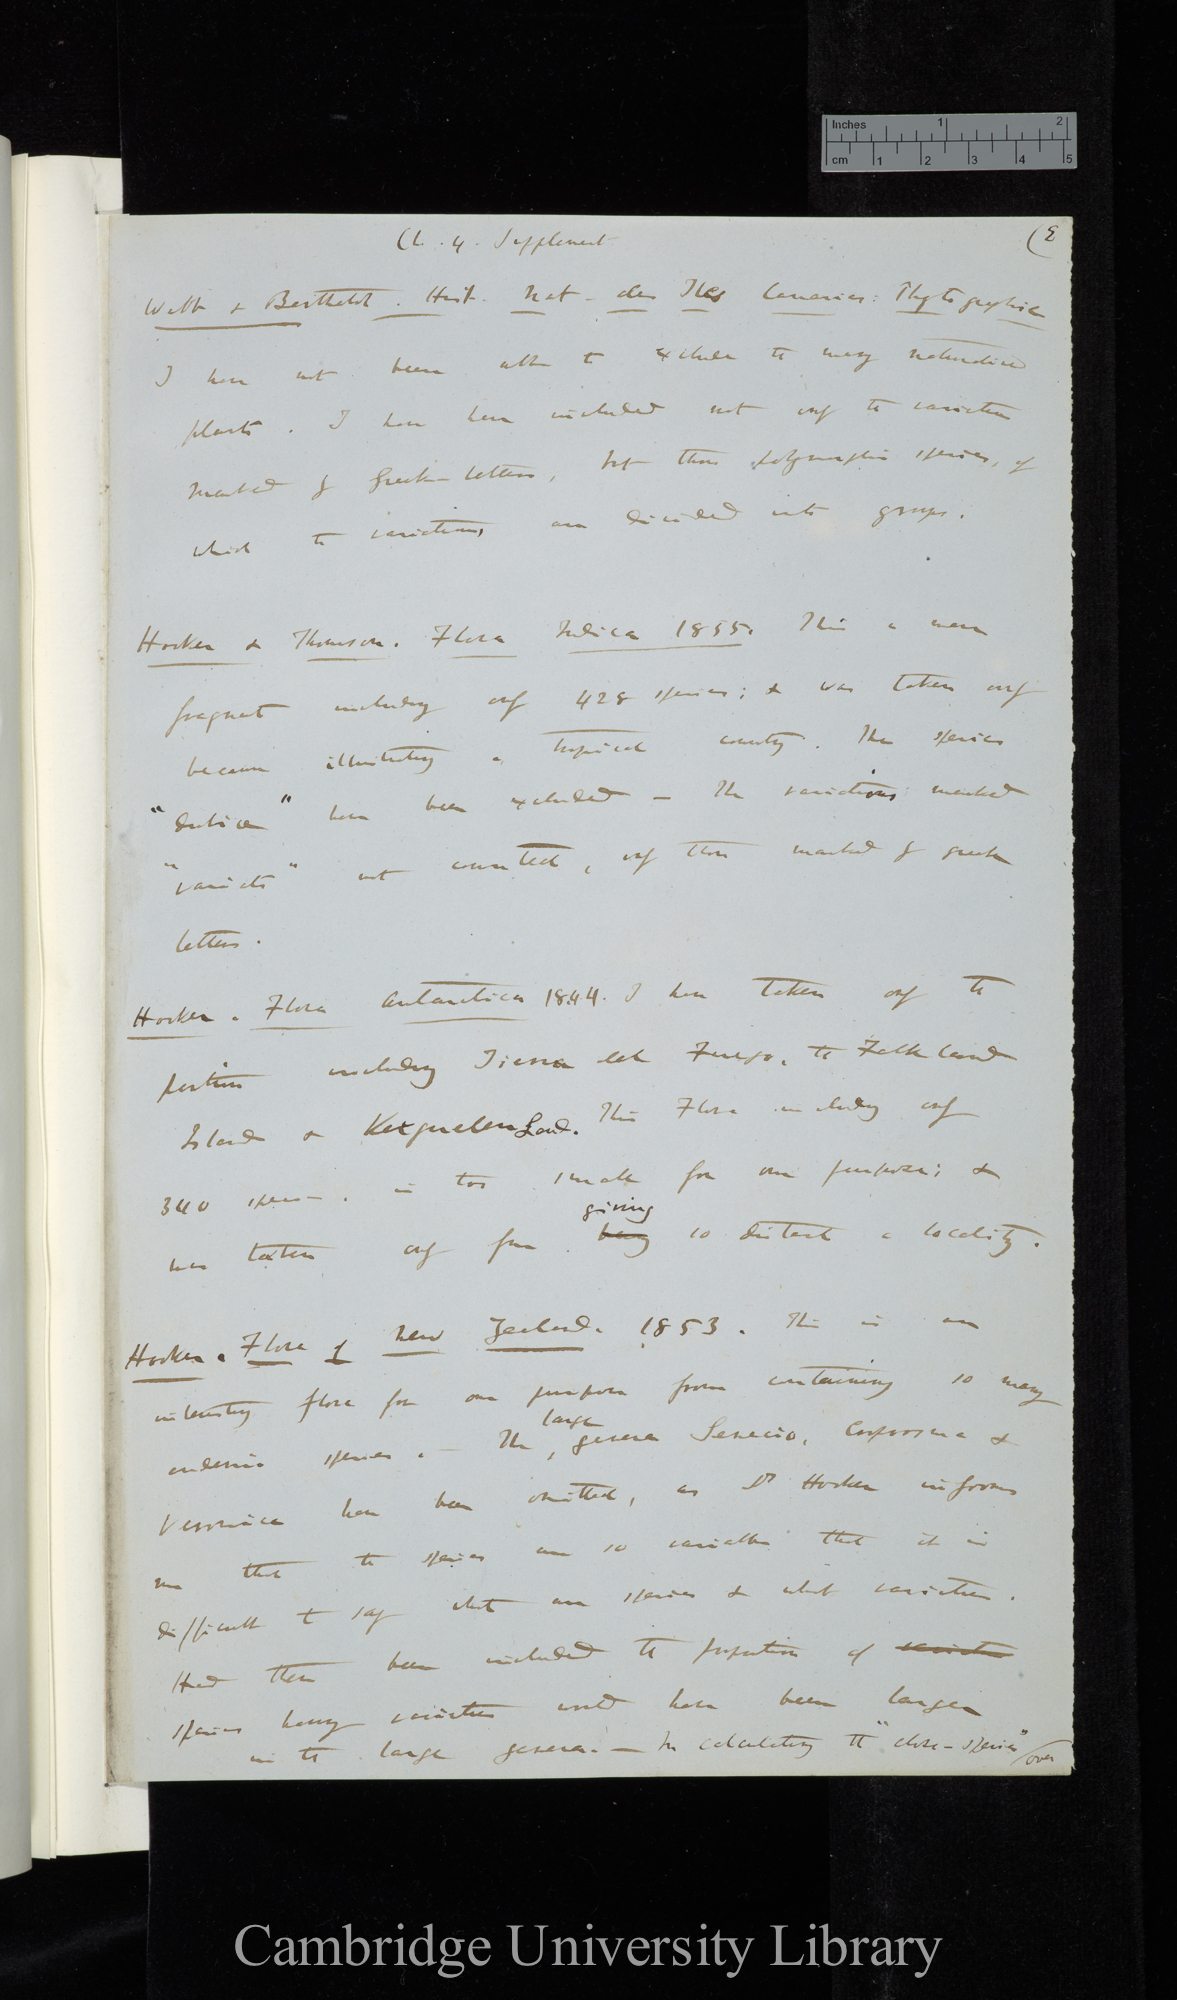 Inches 1 2
cm 1 2 3 4 5
Ch. 4. Supplement (E
Webb & Berthelot. Hist. Nat. des Iles Canaries: Phytographia
I have not been able to exclude the many naturalised
plants. I have here included not only the varieties
marked by Greek letters, but those polymorphic species, of
which the variations are divided into groups.
Hooker & Thomson. Flora Indica 1855. This is a mere
fragment including only 428 species; & was taken only
because illustrating a tropical country. The species
"dubiæ" have been excluded — The variations marked
"varieties" not counted, only those marked by greek
letters.
Hooker. Flora Antarctica 1844. I have taken only the
portion including Tierra del Fuego, the Falkland
Islands & Kerguelen Land. This Flora including only
340 species. is too small for our purpose; &
was taken only from giving being so distant a locality.
Hooker. Flora of New Zealand. 1853. This is an
interesting flora for our purpose from containing so many
endemic species. — The large genera Senecio, Coprosma &
Veronica have been omitted, as Dr Hooker informs
me that the species are so variable that it is
difficult to say what are species & what varieties.
Had these been included the proportion of varieties
species having varieties would have been larger
in the large genera. — In calculating the "close-species"
over
Cambridge University Library